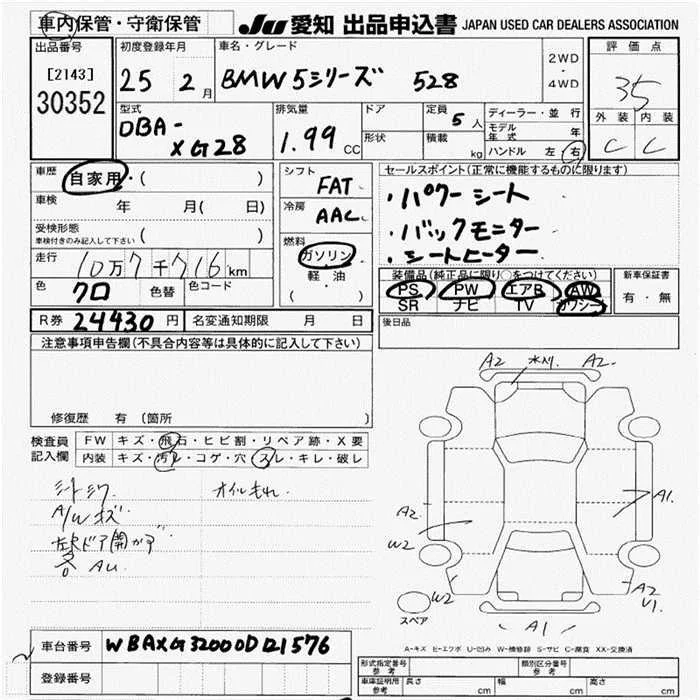 車内保管・守衛保管
JU 愛知 出品申込書 JAPAN USED CAR DEALERS ASSOCIATION
出品番号
[2143]
30352
初度登録年月
25 2 月
車名・グレード
BMW 5シリーズ 528
2WD
・
4WD
評価点
35
外装 内装
C C
型式
DBA-
XG28
排気量
1.99 CC
ドア
形状
定員 5 人
積載 kg
ディーラー・並行
モデル年式 年
ハンドル 左 右
車歴
自家用・( )
車検 年 月( 日)
受検形態
車検付きのみ記入して下さい ( )
走行
10万7千716km
色
クロ
色替
色コード
シフト
FAT
冷房
AAC
燃料
ガソリン
軽・油
( )
セールスポイント(正常に機能するものに限ります)
・パワーシート
・バックモニター
・シートヒーター
装備品(純正品に限り○をつけてください)
PS PW エアB AW
SR ナビ TV カワシート
新車保証書
有・無
R券 24430 円
名変通知期限 月 日
後日品
注意事項申告欄(不具合内容等は具体的に記入して下さい)
修復歴 有 (箇所 )
検査員
記入欄
FW キズ・飛石・ヒビ割・リペア跡・X要
内装 キズ・汚レ・コゲ・穴・スレ・キレ・破レ
シートシワ
オイルもれ
A/Wキズ
ドア開
各AU
A2 水刈 A2
A2
W2
A1
W2
A2
V1
A1
スペア
A-キズ E-エクボ U-凹み W-補修跡 S-サビ C-腐食 XX-交換済
車台番号 WBAXG32000D121576
登録番号
形式指定番号
参考
類別区分番号
参考
車庫証明用
参考
長さ cm 幅 cm 高さ cm